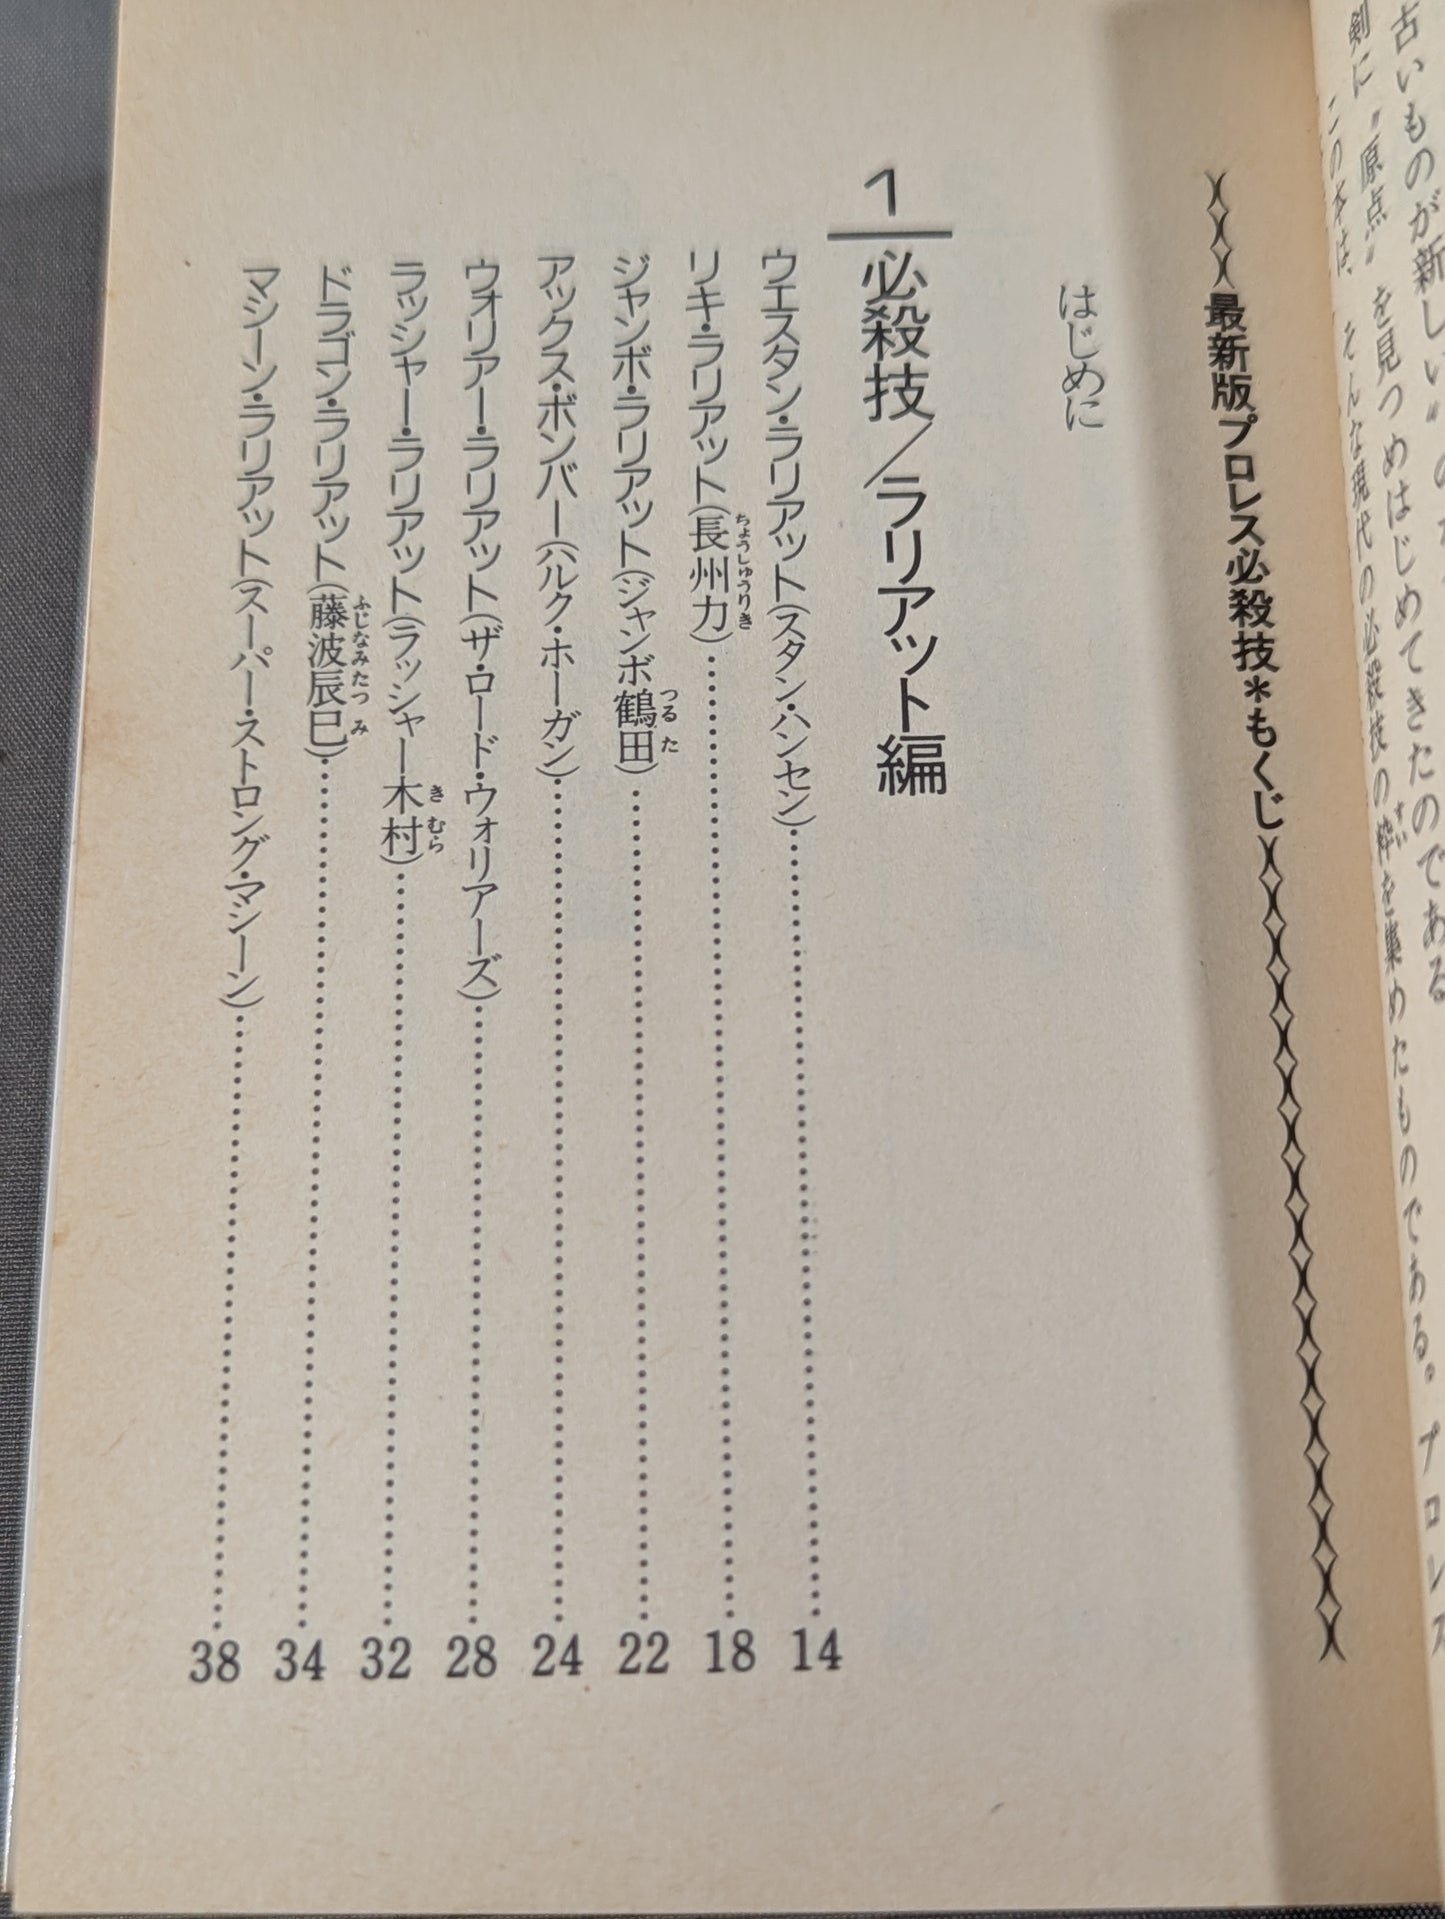 古いものが新しい〃の
を見つめはじめてきたのである
剣に〝原点〟
この本は、そんな現代の必殺技の粋を集めたものである。プロレス
最新版プロレス必殺技*もくじ
はじめに
1 必殺技/ラリアット編
ウエスタン・ラリアット(スタン・ハンセン)……14
リキ・ラリアット(長州力)……18
ジャンボ・ラリアット(ジャンボ鶴田)……22
アックス・ボンバー(ハルク・ホーガン)……24
ウォリアー・ラリアット(ザ・ロード・ウォリアーズ)……28
ラッシャー・ラリアット(ラッシャー木村)……32
ドラゴン・ラリアット(藤波辰巳)……34
マシーン・ラリアット(スーパー・ストロング・マシーン)……38